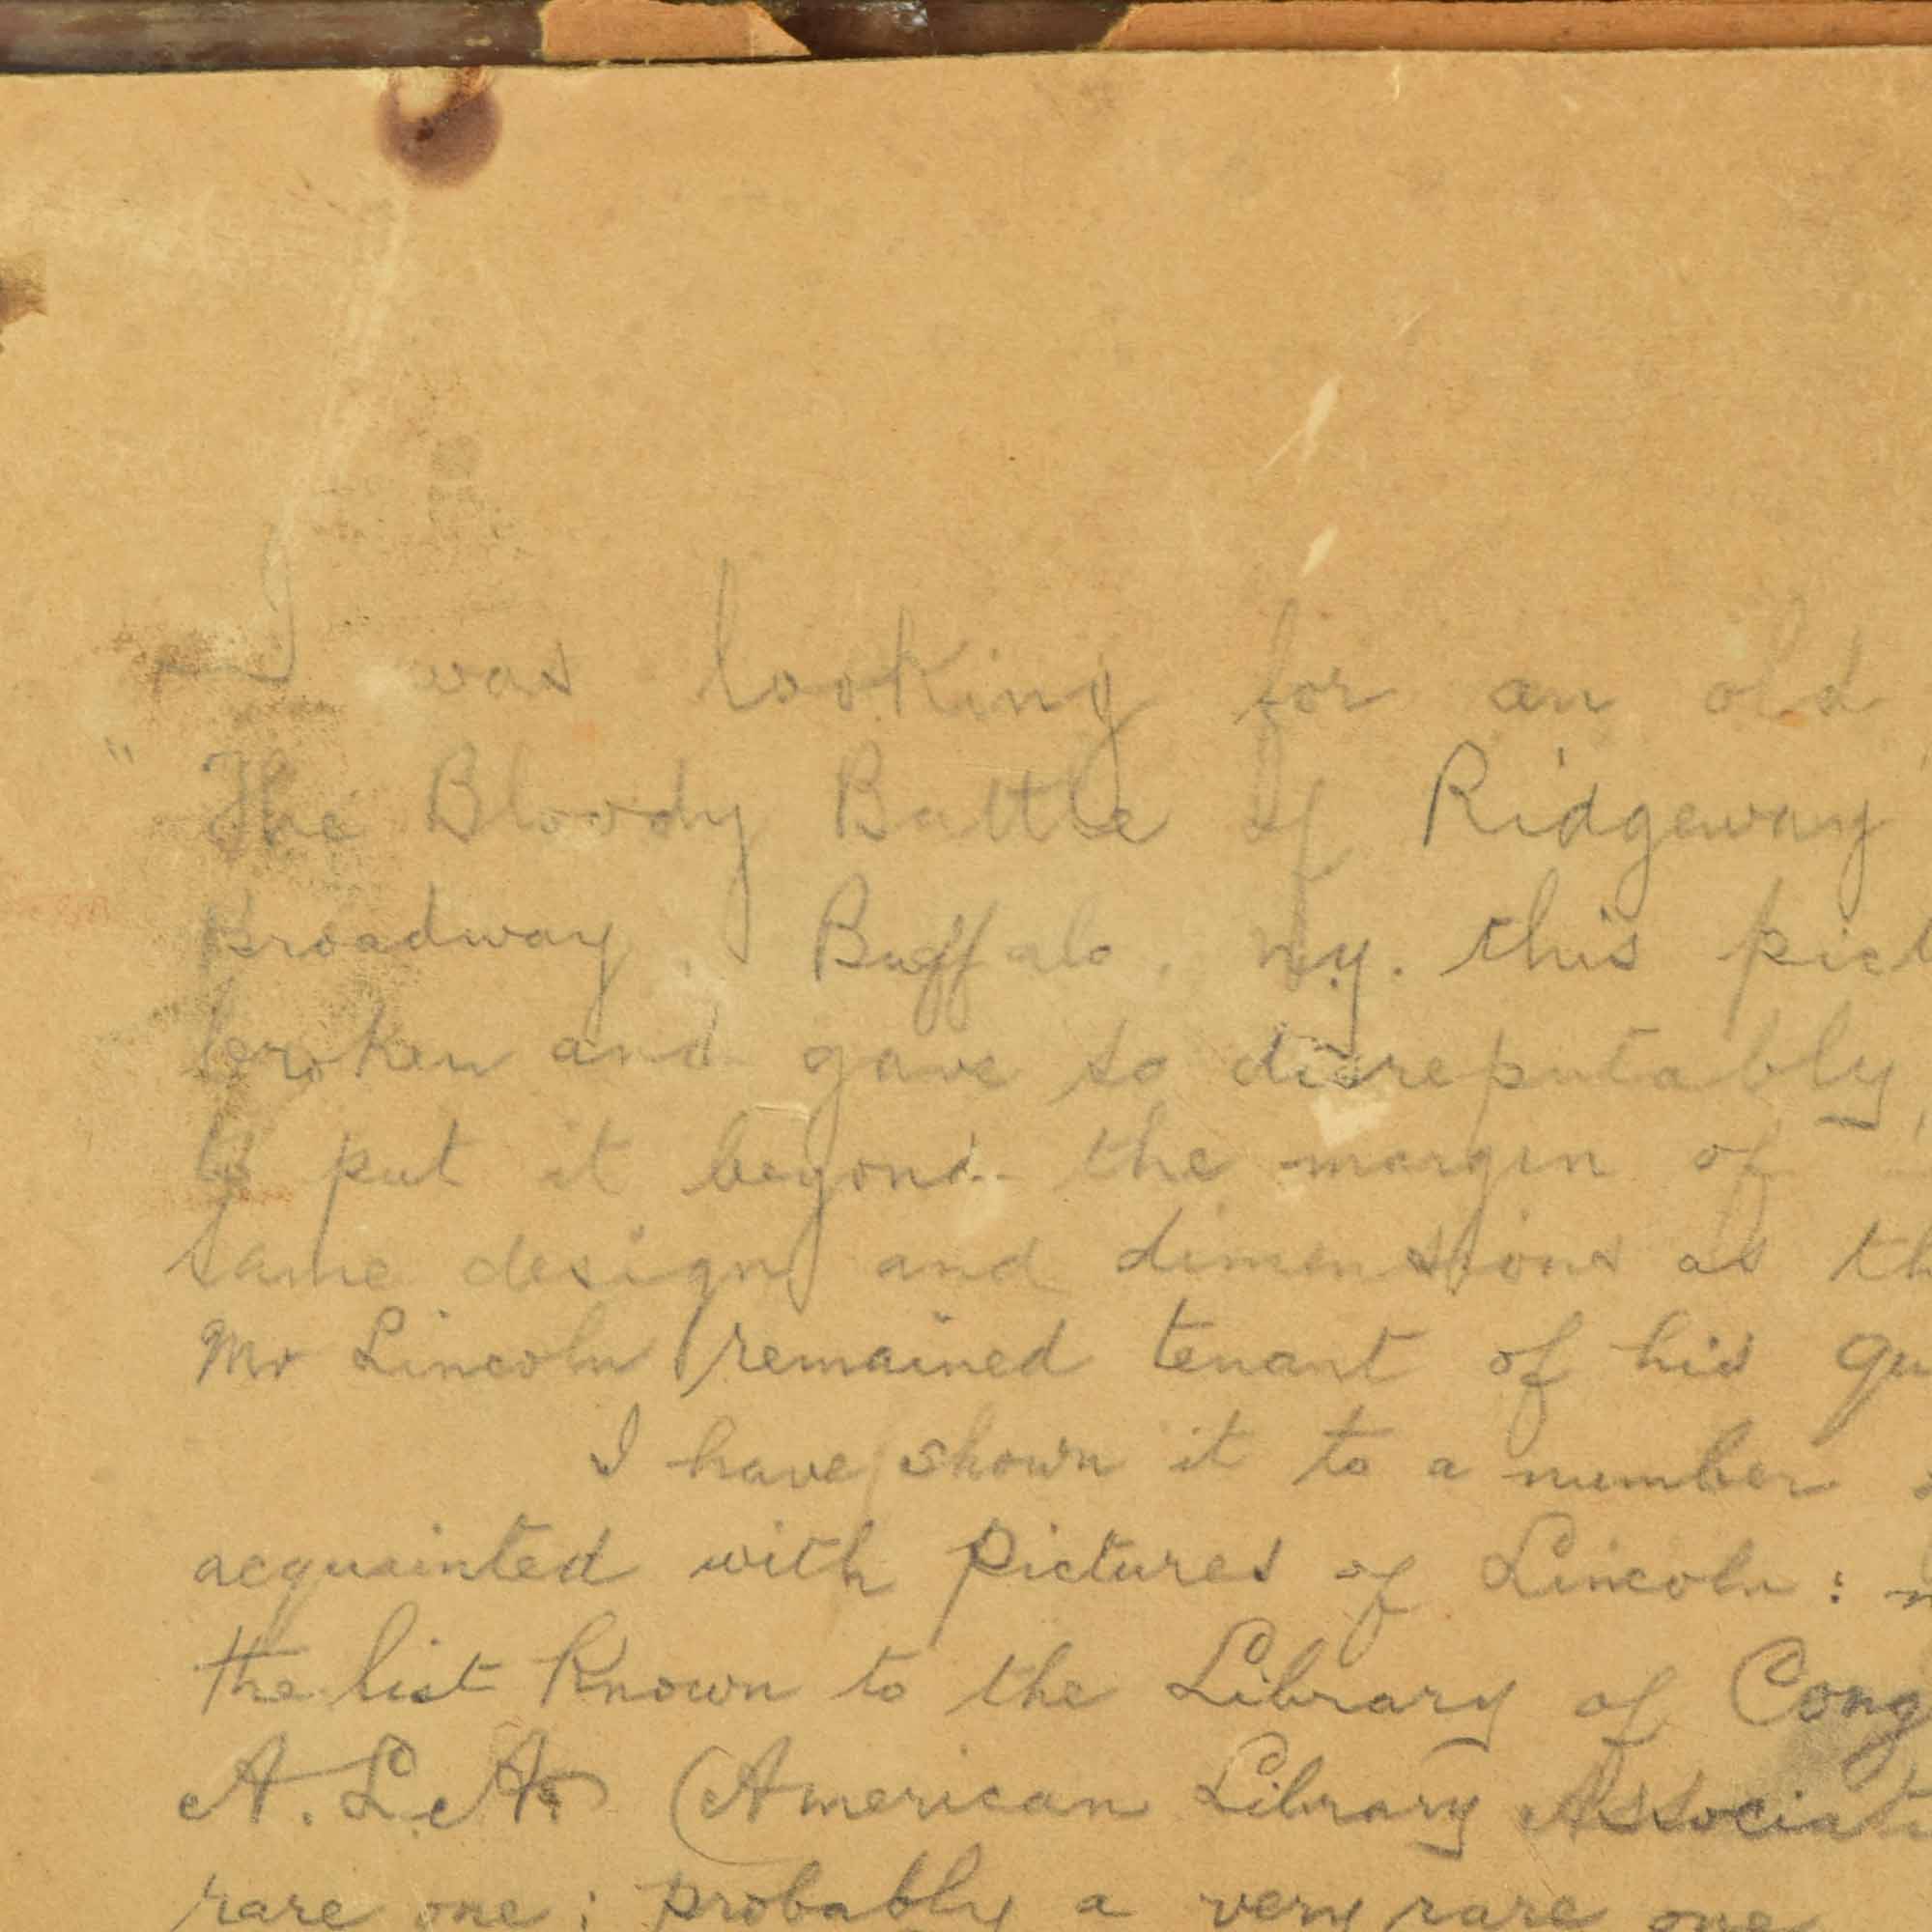 I was looking for an old
" The Bloody Battle of Ridgeway
Broadway, Buffalo, n.y. this pict
broken and gave so disreputably,
to put it beyond the margin of
same design and dimensions as th
Mr Lincoln remained tenant of his qu
I have shown it to a number
acquainted with pictures of Lincoln :
the list known to the Library of Cong
A. L. A. (American Library Associati
rare one ; probably a very rare one